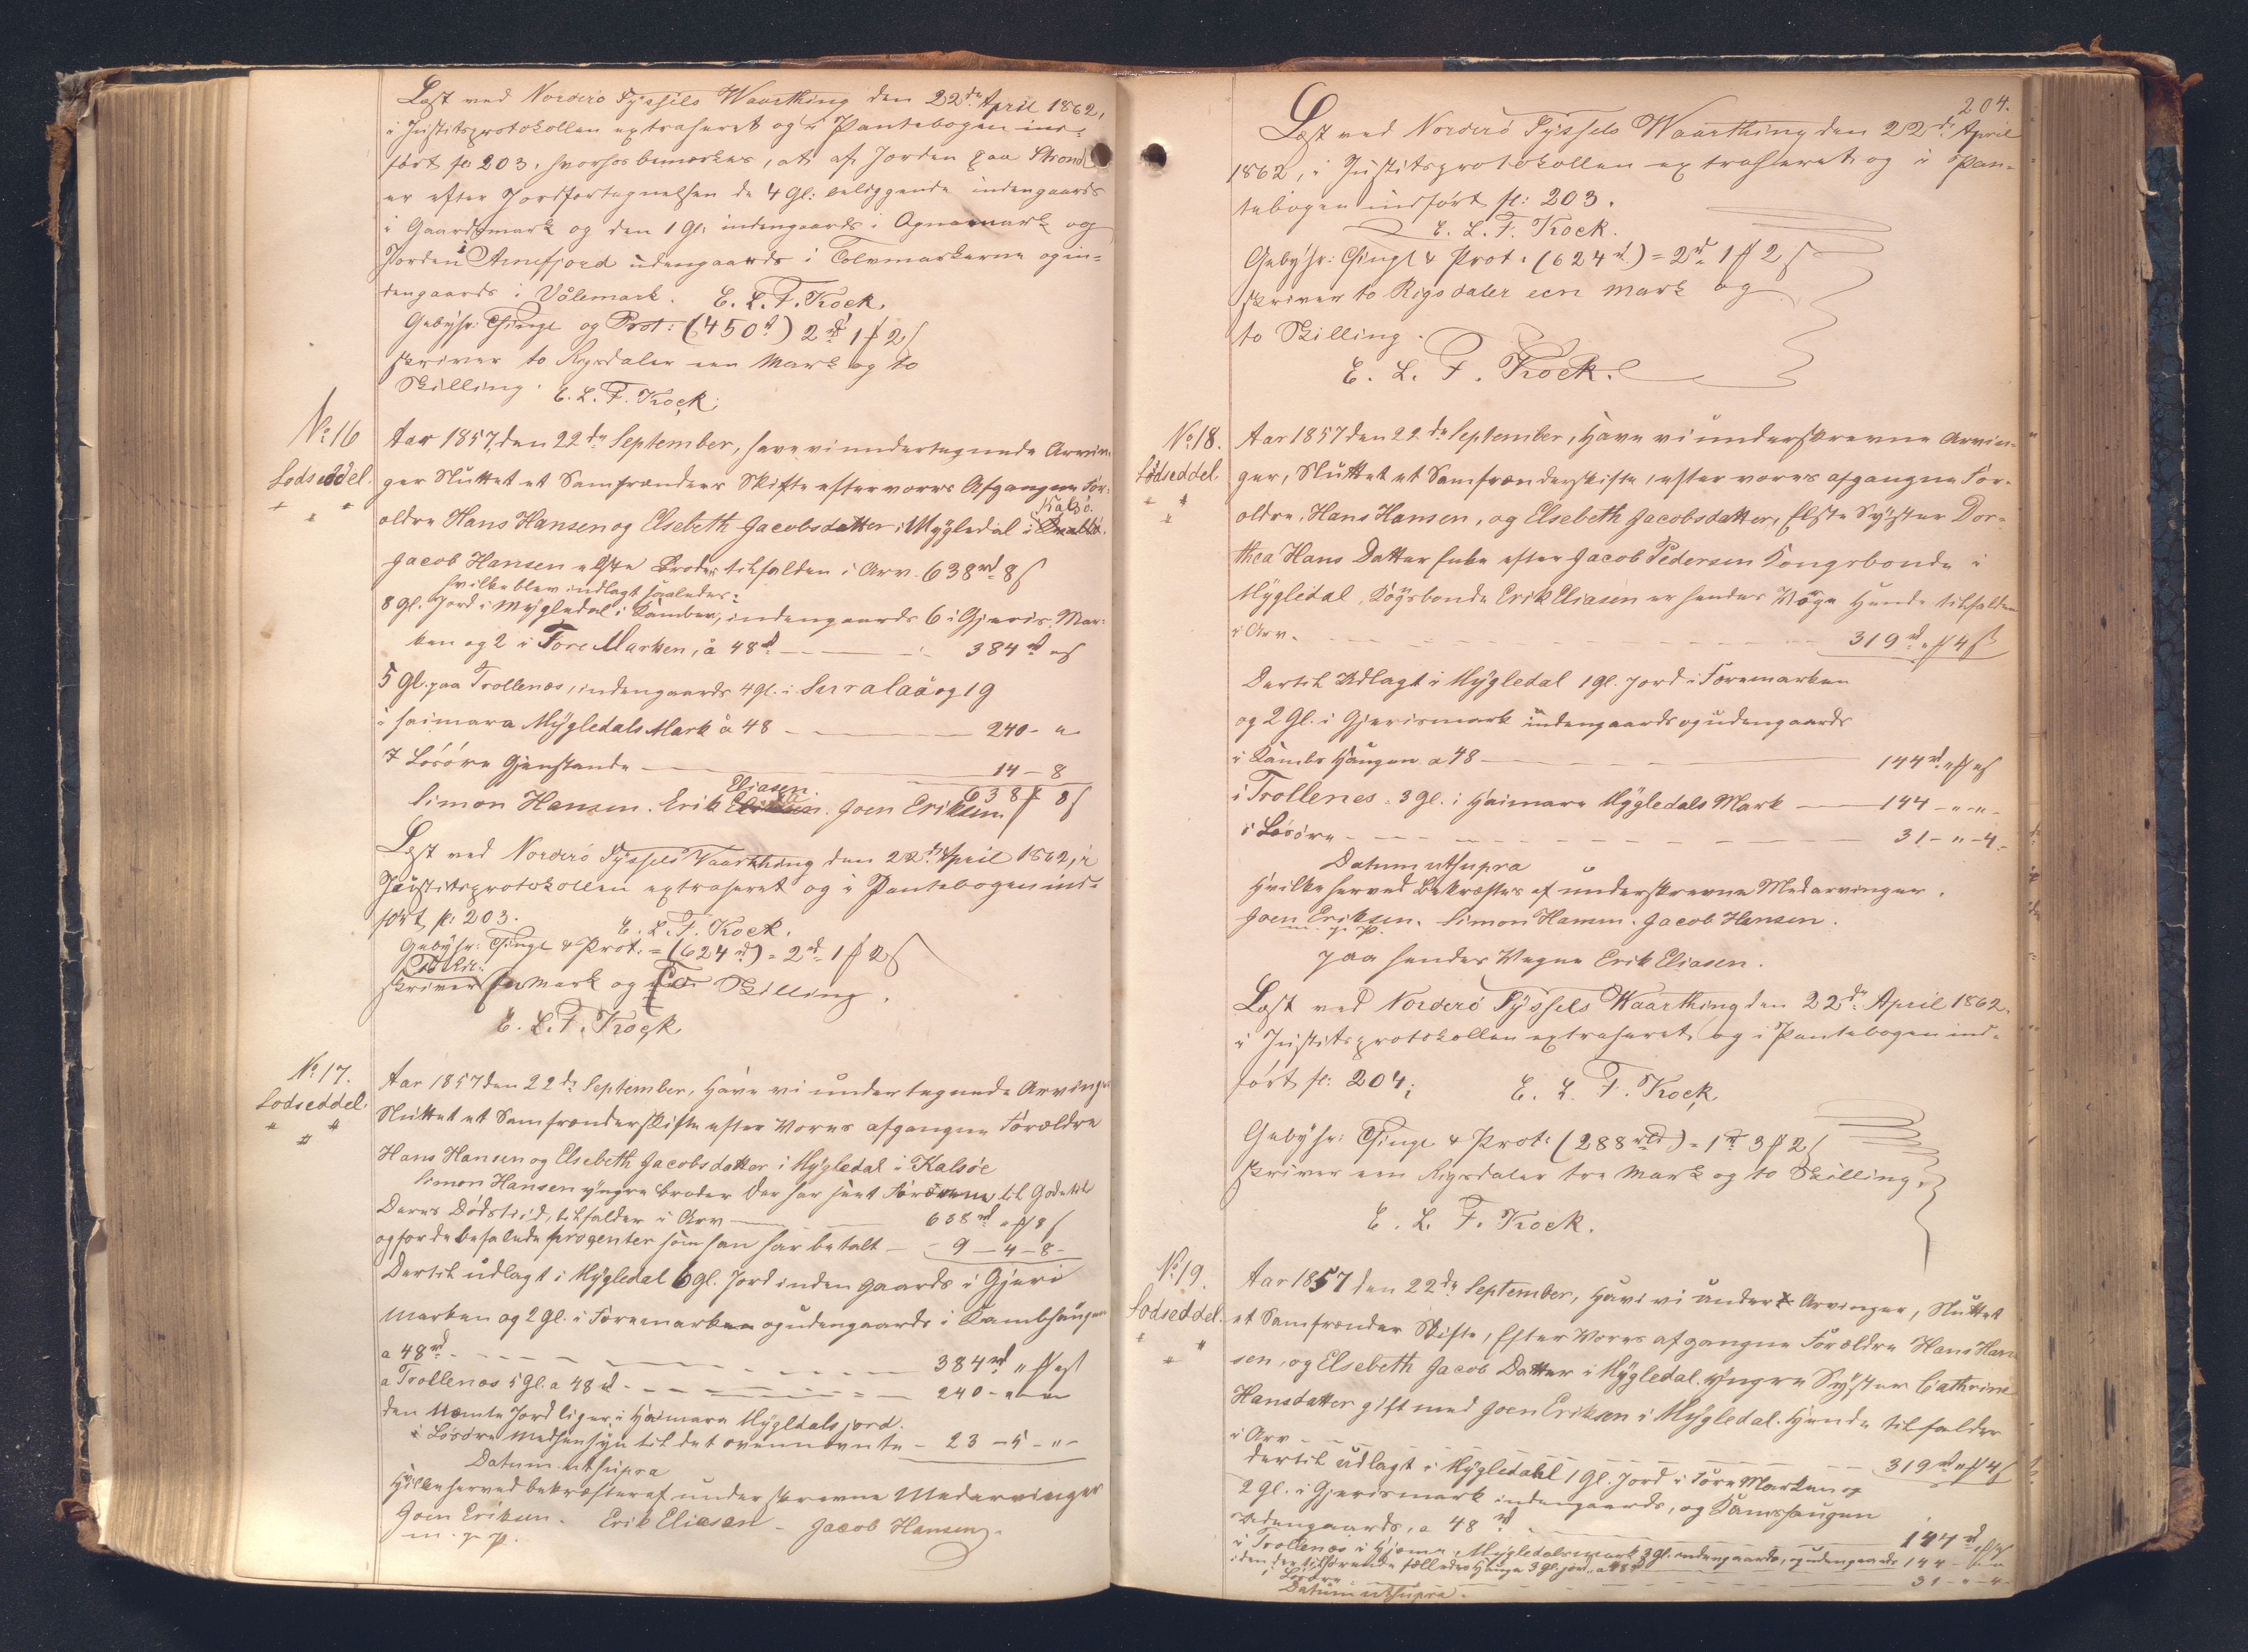 Læst ved Norderø Syssels Vaarthing den 22de April 1862,
i Justitsprotokollen extraheret og i Pantebogen ind-
ført fo 203. hvorhos bemærkes, at af Jorden paa Strond
er efter Jordfortegnelsen de 4 Gl: beliggende indengaards
i Gaardsmark og den 1 Gl: indengaards i Ognamark og
Jorden i Arnefjord udengaards i Tolvmarkerne og in-
dengaards i Válemark. E. L. F. Kock.
Gebyhr: Thingl og Prot: (450rd) 2rd 1 ß 2 s
skriver to Rigsdaler een Mark og to
Skilling. E. L. F. Kock.
No 16
Lodseddel.
Aar 1857, den 22de September, have vi undertegnede Arvin-
ger Sluttet et Samfrænders Skifte efter vores Afgangne For-
Kalsø.
oldre Hans Hansen og Elsebeth Jacobsdatter i Mygledal i
Jacob Hansen ælste Broder tilfalden i Arv. 638rd 8 s
hvilke blev indlagt saaledes:
8 gl. Jord i Mygledal i Kamber, indengaards 6 i Gjeris Mar-
ken og 2 i Fore Marken, á 48rd 384rd " s
5 Gl. paa Trollenæs, indengaards 4 gl. i og 1 g
i haimara Mygledals Mark á 48 240 - "
I Lösöre Gjenstande 14 - 8
638 ß 8 s
Eliasen.
Simon Hansen. Erik Joen Eriksen
Læst ved Norderö Syssels Vaarthing den 22de April 1862, i
Justitsprotokollen extraheret og i Pantebogen ind-
ført fo: 203.
E. L. F. Kock.
Gebyhr: Thingl & Prot. = (624rd) = 2rd 1 ß 2 s
To Rd:
skriver en Mark og to Skilling.
E. L. F. Kock
No 17.
Lodseddel.
Aar 1857 den 22de September, Have vi undertegnede Arvinger
Sluttet et Samfrænderskifte efter Vores afgangne Forældre
Hans Hansen og Elsebeth Jacobsdatter i Mygledal i Kalsöe
Simon Hansen yngre broder Der har tient Forældrene til Gode til
Deres Dödstiid, tilfalder i Arv 638rd " ß 8 s
og for de befalede progenter som han har betalt - 9 - 4 - 8 -
Dertil udlagt i Mygledal 6 gl. Jord inden gaards i Gjeri
Marken og 2 gl. i Foremarken og udengaards i Kambhaugen
a 48rd 384rd " ß " s
a Trollenæs 5 gl. a 48rd 240 - " - "
den Næmte Jord liger i Haimara Mygledals jord.
i Lösöre Medhensyn til det ovennævnte - 23 - 5 - " -
Datum utsupra
Hvilke herved bekræftes af underskrevne Medarvinger
Joen Eriksen. Erik Eliasen - Jacob Hansen.
m. g. p.
204.
Læst ved Norderö Syssels Vaarthing den 22de April
1862, i Justitsprotokollen extraheret og i Pan-
tebogen indført fo: 203.
E. L. F. Kock.
Gebyhr: Thingl & Prot. (624rd) = 2rd 1 ß 2 s
skriver to Rigsdaler een Mark og
to Skilling.
E. L. F. Kock.
No 18.
Lodseddel.
Aar 1857 den 22de September, Have vi underskrevne Arvin-
ger, Sluttet et Samfrænderskifte, efter vores afgangne For-
oldre, Hans Hansen, og Elsebeth Jacobsdatter, Elste Syster Dor-
thea Hans Datter Enke efter Jacob Pedersen Kongsbonde i
Mygledal, Kogsbonde Erik Eliasen er hendes Værge Hende tilfalden
i Arv. 319rd " ß 4 s
Dertil Udlagt i Mygledal 1 gl. jord i Foremarken
og 2 Gl. i Gjerismark indengaards og udengaards
i Kambs Haugen a 48 144rd " ß " s
i Trollenes 3 gl. i Haimara Mygledals Mark 144 - " - " -
i Lösöre 31 - " - 4 -
Datum utsupra
Hvilke herved Bekræftes af underskrevne Medarvinger.
Joen Eriksen. Simon Hansen. Jacob Hansen.
m. g. p.
paa hendes Vegne Erik Eliasen.
Læst ved Norderö Syssels Vaarthing den 22de April 1862.
i Justitsprotokollen extraheret og i Pantebogen ind-
ført fo: 204;
E. L. F. Kock
Gebyhr: Thingl & Prot: (288rd) = 1rd 3 ß 2 s
skriver een Rigsdaler tre Mark og to Skilling.
E. L. F. Kock.
No 19.
Lodseddel.
Aar 1857 den 22de September, Have vi under Arvinger, Sluttet
et Samfrænder Skifte, Efter Vores afgangne Forældre Hans Han-
sen, og Elsebeth Jacob Datter i Mygledal. yngre Syster Cathrine
Hansdatter gift med Joen Eriksen i Mygledal. Hende tilfalder
i Arv 319rd " ß 4 s
dertil udlagt i Mygledahl 1 gl. Jord i Fore Marken og
2 gl. i Gjerismark indengaards, og Kamshaugen
udengaards, a 48rd 144rd " ß " s
i Trollenæs i Hjæma Mygledalsmark 3 gl. indengaards, og udengaards 144 - " - "
i den dertilhørende fælleds Hauge 3 gl. jord a 48rd
i Lösöre 31 - " - 4 -
Datum utsupra.